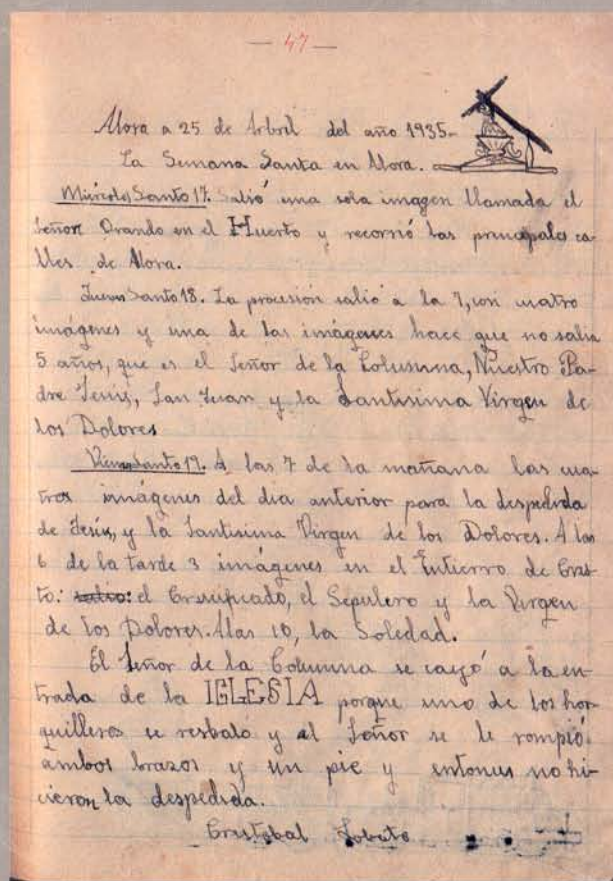 — 47 —
Alora a 25 de Arbril del año 1935-
La Semana Santa en Alora.
Miércoles Santo 17. Salió una sola imagen llamada el
Señor Orando en el Huerto y recorrió las principales ca-
lles de Alora.
Jueves Santo 18. La procesión salió a la 7, con cuatro
imágenes y una de las imágenes hace que no salia
5 años, que es el Señor de la Columna, Nuestro Pa-
dre Jesús, San Juan y la Santisima Virgen de
los Dolores
Viernes Santo 19. A las 7 de la mañana las cua-
tros imágenes del dia anterior para la despedida
de Jesús, y la Santisima Virgen de los Dolores. A las
6 de la tarde 3 imágenes en el Entierro de Cris-
to: salio: el Crucificado, el Sepulcro y la Virgen
de los Dolores. A las 10, la Soledad.
El Señor de la Columna se cayó a la en-
trada de la IGLESIA porque uno de los hor-
quilleros se resbaló y al Señor se le rompió
ambos brazos y un pie y entonces no hi-
cieron la despedida.
Cristobal Lobato